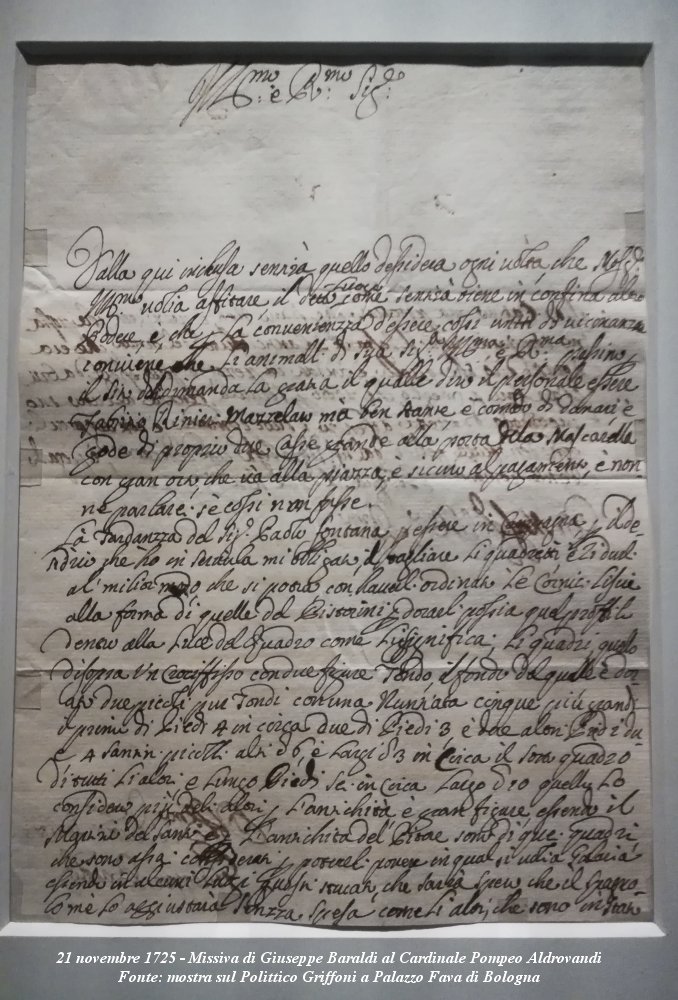 Ill:mo e R:mo Sig:re
Dalla qui inclusa sentirà quello desidera ogni volta che Monsig:
Ill:mo volia affitare il detto loco, come sentirà viene in confina altro
Podere, è, che La convenienza d'essere cossi uniti di vicinanza
conviene che Li animali di Sua Sig:ria Ill:ma e R:ma
il Sito dimanda La il qualle dice il personale essere
Fabrizio Rinieri Mazzelaro mà ben stante e comodo di danari, è
gode di proprio due Case grande alla porta dela Mascarella
con gran orto, che và alla piazza, è sicuro al pagamento, è non
ne parlarei se cossi non fosse.
La Tardanza del Sig:r Paolo fontana p essere in Campagna, p il de-
che hò in mi di tagliare Li quadretti è ridurli
al milior modo che si potrà con farvi ordinare Le Cornici Liscie
alla forma di quelle del Pistorini e dorarli possia quel proffilo
dentro alla Luce del Quadro come Li significa; Li quadri, quello
disopra Un Crociffisso con due figure Tondo, il fondo del qualle è dor-
ato due picoli pur Tondi con una Nunziata cinque più grandi
i primi di Piedi 4 in circa due di Piedi 3 è due altri Piedi du-
e, 4 Santini picoli alti d 6, è Largi d 3 in Circa il soto quadro
di tutti Li altri e Lungo Piedi sei in Circa Largo d 10 quello Lo
considero più deli altri p L'antichità e gran figure essendo il
Martirio de Santi è p L'antichità del Pitore sono p que quadri
che sono assai considerati, p poterli ponere in qual si volia Galaria
essendo in alcuni Lochi stucati, che sarà spero che il Spagno-
lo me Lo aggiustarà Senzza spesa come Li altri, che sono in stato
21 novembre 1725 - Missiva di Giuseppe Baraldi al Cardinale Pompeo Aldrovandi
Fonte: mostra sul Polittico Griffoni a Palazzo Fava di Bologna